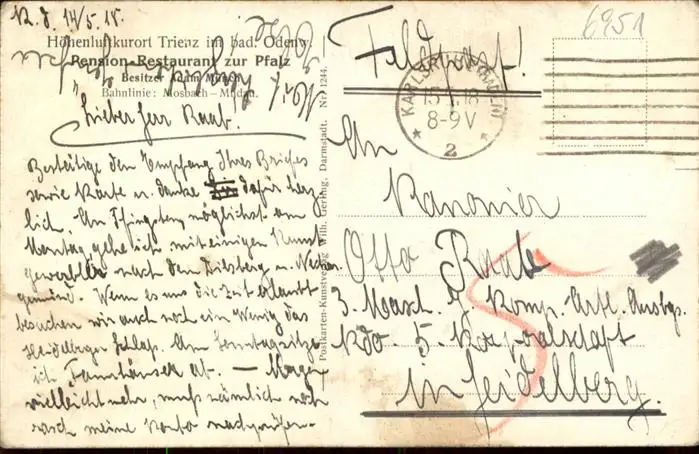 14/5.18.
Höhenluftkurort Trienz im bad. Odenw.
Pension-Restaurant zur Pfalz
Besitzer
Bahnlinie: Mosbach-Mudau.
Lieber Herr Raab.
Bestätige den Empfang Ihres Briefes
sowie Karte u. danke dafür herz
lich. An Pfingsten, möglichst am
Montag gehe ich mit einigen Kunst
gewerbler nach dem Dilsberg u. Neckar
gemünd. Wenn es uns die Zeit erlaubt
besuchen wir auch noch ein wenig das
Heidelberger Schloß. Am Sonntag
ich
vielleicht mehr, muß nämlich noch
rasch meine nachprüfen.
Postkarten-Kunstverlag Wilh. Gerling, Darmstadt. Nr. 1244.
6951
Feldpost!
KARLSRUHE (BADEN)
15 5 18
8-9 V
2
An
Kanonier
Otto Raab
3. Masch. Komp. Artl.
Kdo. 5. Korporalschaft
in Heidelberg.
5